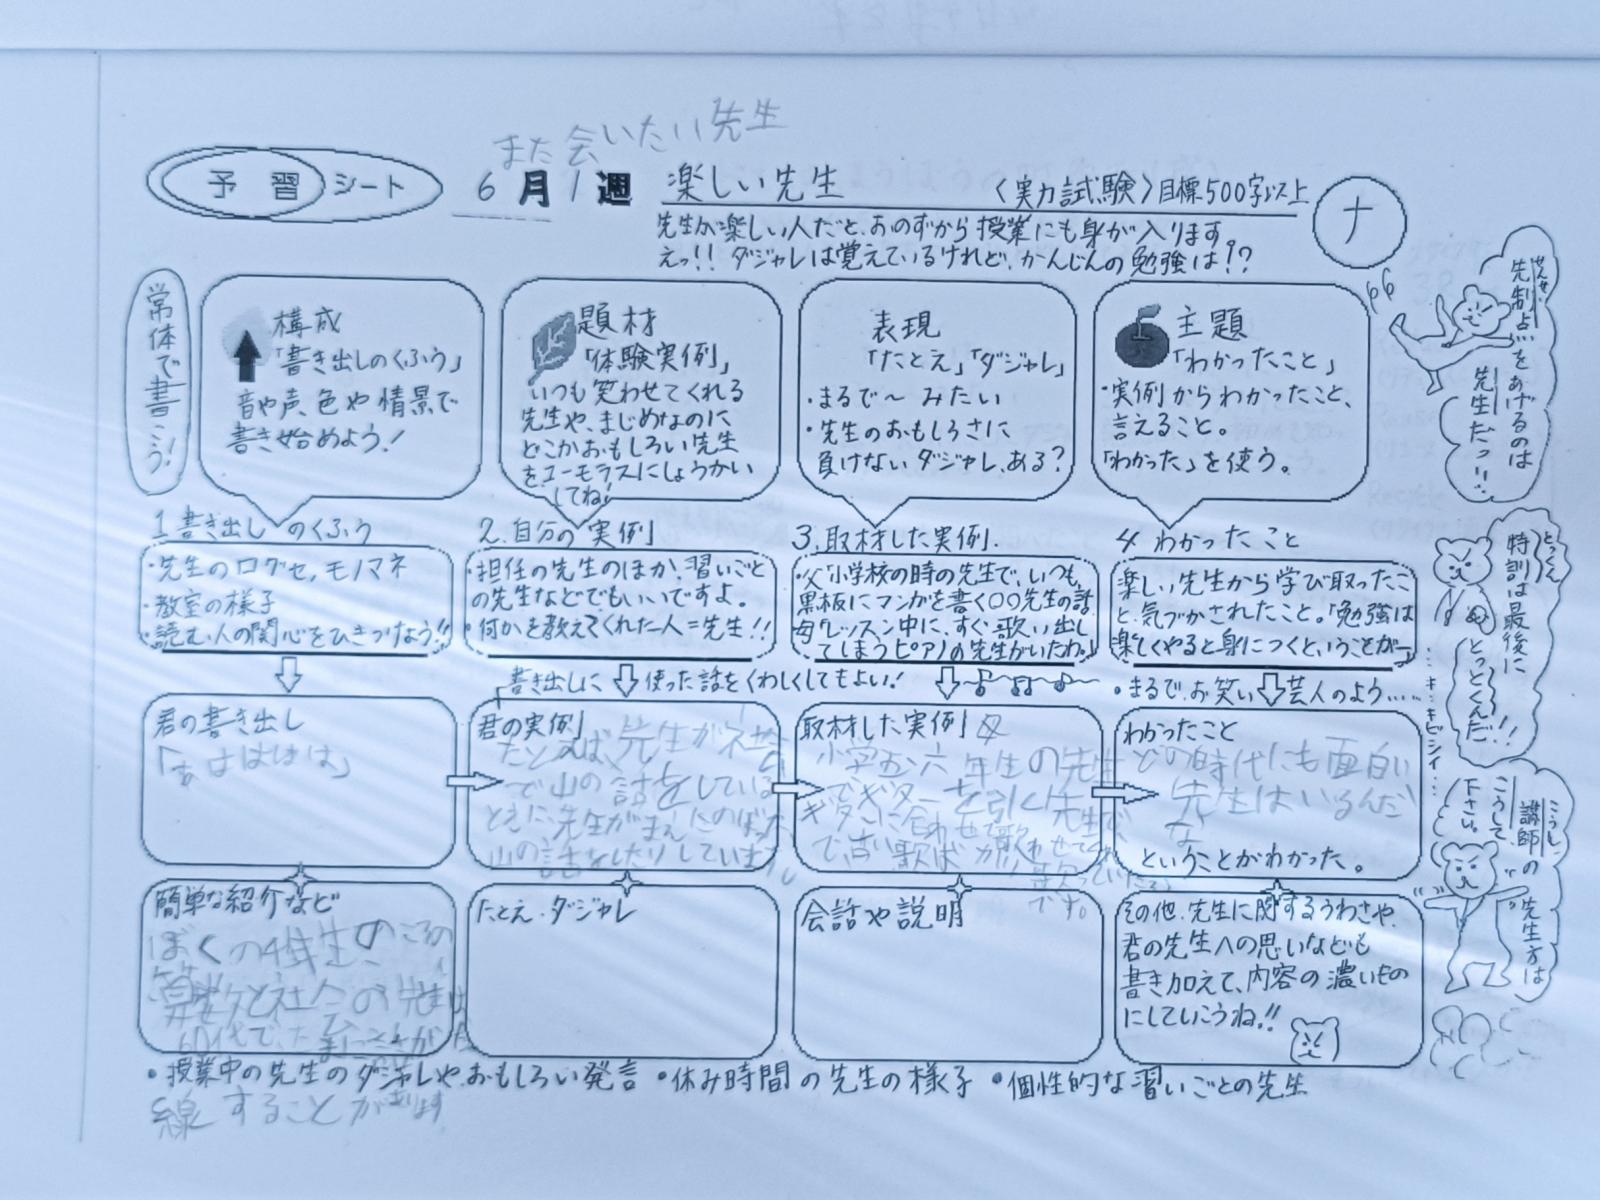 また会いたい先生
予習シート
6月1週 楽しい先生 〈実力試験〉目標500字以上
ナ
先生が楽しい人だと、おのずから授業にも身が入ります
えっ!! ダジャレは覚えているけれど、かんじんの勉強は!?
常体で書こう!
構成
「書き出しのくふう」
音や声、色や情景で
書き始めよう!
題材
「体験実例」
いつも笑わせてくれる
先生や、まじめなのに
どこかおもしろい先生
をユーモラスにしょうかい
してね!
表現
「たとえ」「ダジャレ」
・まるで〜みたい
・先生のおもしろさに
負けないダジャレ、ある?
主題
「わかったこと」
・実例からわかったこと、
言えること。
「わかった」を使う。
せんせい
先制点をあげるのは
先生だっ!!
1 書き出しのくふう
・先生の口グセ、モノマネ
・教室の様子
・読む人の関心をひきつけよう!!
2.自分の実例
・担任の先生のほか、習いごと
の先生などでもいいですよ。
・何かを教えてくれた人=先生!!
3.取材した実例.
・父「小学校の時の先生で、いつも
黒板にマンガを書く〇〇先生の話
母「レッスン中に、すぐ歌い出し
てしまうピアノの先生がいたわ。」
4 わかったこと
楽しい先生から学び取ったこ
と、気づかされたこと。「勉強は
楽しくやると身につくということが〜」
とっくん
特訓は最後に
とっとくんだ!!
書き出しに使った話をくわしくしてもよい!
・まるで、お笑い芸人のよう……
君の書き出し
君の実例
たとえば、先生が社会
で山の話をしている
ときに、先生がまえにのぼった
山の話をしたりしています
取材した実例
小学五、六年生の先生
でギターを引く先生で、
ギターに合わせて歌わせてくれ
です。
わかったこと
どの時代にも面白い
先生はいるんだ
な
ということがわかった。
こうし
講師の先生方は
こうして
下さい。
簡単な紹介など
ぼくの4年生のころの
算数と社会の先生は
60代で、たまに話が脱
線することがあります
たとえ・ダジャレ
会話や説明
その他、先生に関するうわさや、
君の先生への思いなども
書き加えて、内容の濃いもの
にしていこうね!!
・授業中の先生のダジャレや、おもしろい発言 ・休み時間の先生の様子 ・個性的な習いごとの先生